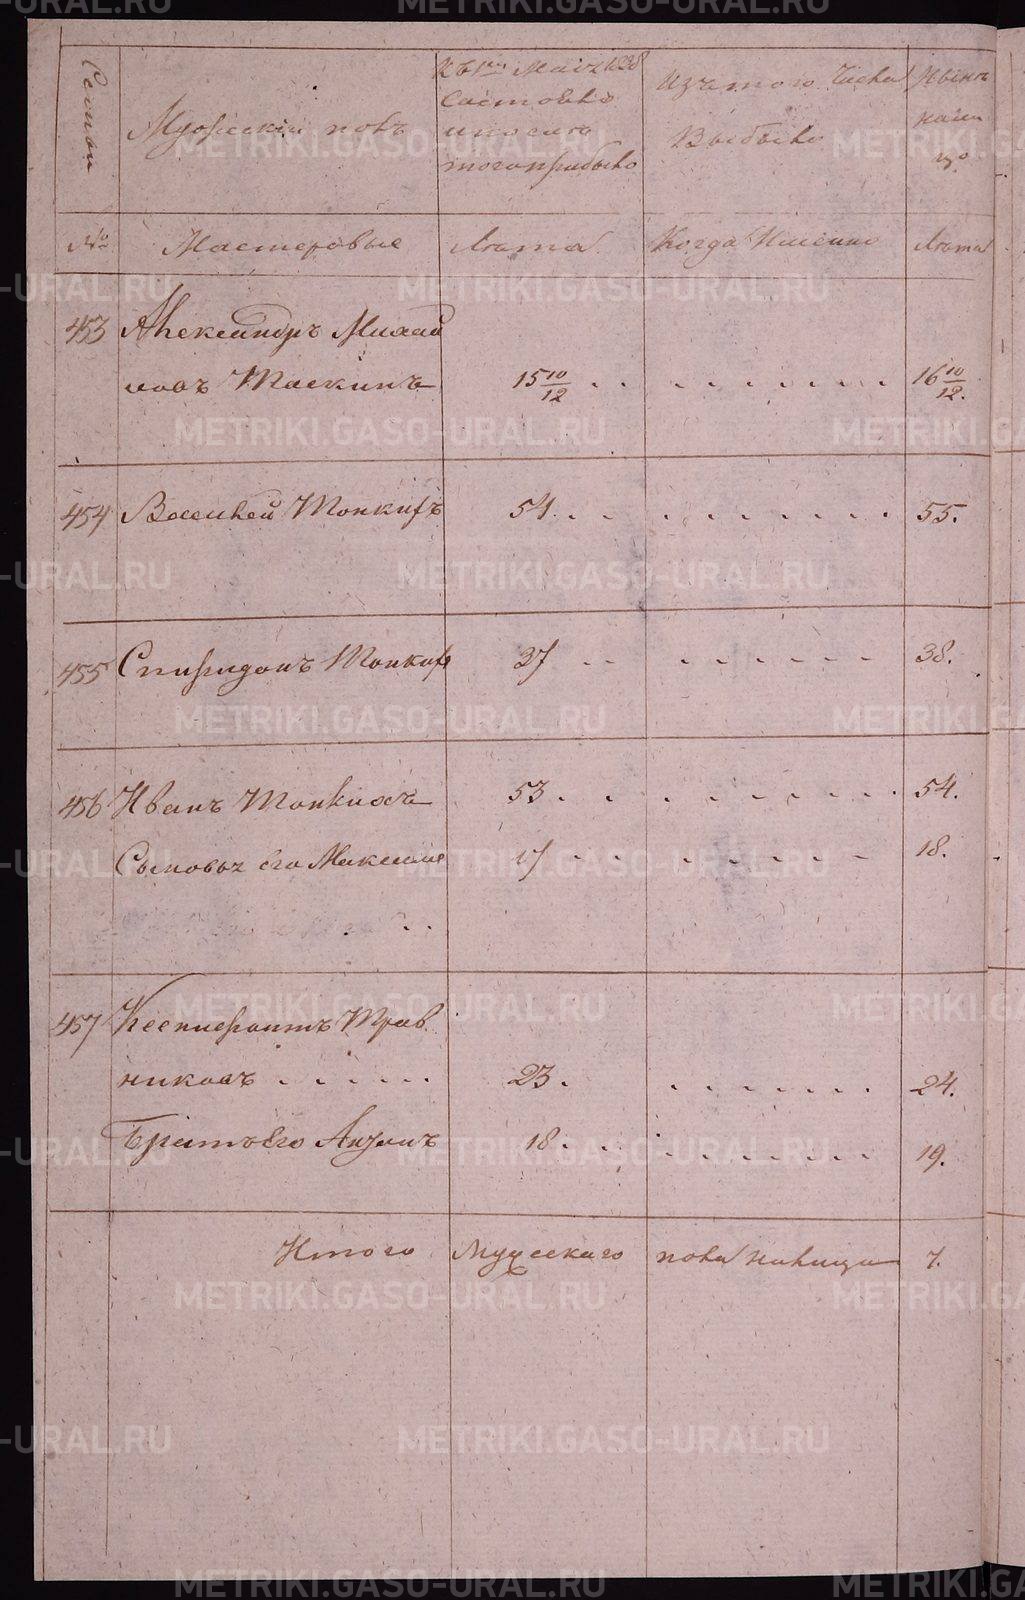 Семьи
Мужескій полъ
Къ 1му Маія 1838
Состояло
и после
того прибыло
Изъ того числа
Выбыло
Ныне
на ли
цо
№
Мастеровые
Лета
Когда Именно
Лета
453 Александръ Михай
ловъ Таскинъ 15 10/12 16 10/12.
454 Василей Тонк 54. 55.
455 Спиридонъ Тонк 37 38.
456 Иванъ 53. 54.
Сыновья его Максимъ 17 18.
457 Ксенофонтъ Трав
никовъ 23. 24.
Братъ его 18. 19.
Итого Мужескаго пола налицо 7.
METRIKI.GASO-URAL.RU